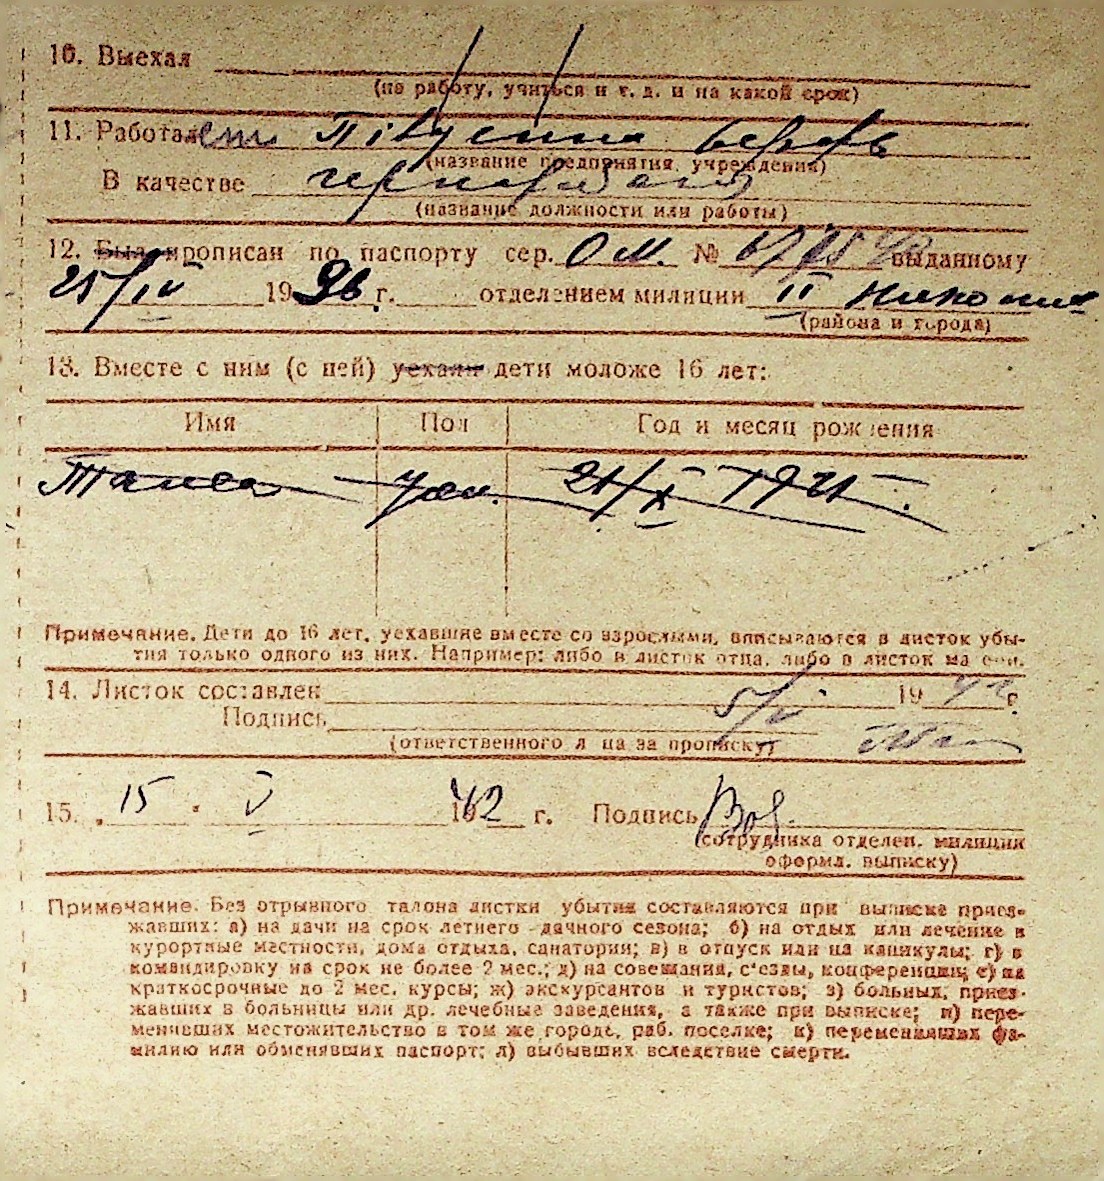 10. Выехал
(на работу, учиться и т. д. и на какой срок)
11. Работал
(название предприятия, учреждения)
В качестве
(название должности или работы)
12. Был прописан по паспорту сер. О М. № выданному
25/IV 1936 г. отделением милиции II
(района и города)
13. Вместе с ним (с ней) уехали дети моложе 16 лет:
Имя Пол Год и месяц рождения
Примечание. Дети до 16 лет, уехавшие вместе со взрослыми, вписываются в листок убы-
тия только одного из них. Например: либо в листок отца, либо в листок матери.
14. Листок составлен 5/V 1942 г.
Подпись
(ответственного лица за прописку)
15. 15 V 1942 г. Подпись
(сотрудника отделен. милиции
оформл. выписку)
Примечание. Без отрывного талона листки убытия составляются при выписке приез-
жавших: а) на дачи на срок летнего дачного сезона; б) на отдых или лечение в
курортные местности, дома отдыха, санатории; в) в отпуск или на каникулы; г) в
командировку на срок не более 2 мес.; д) на совещания, с'езды, конференции; е) на
краткосрочные до 2 мес. курсы; ж) экскурсантов и туристов; з) больных, приез-
жавших в больницы или др. лечебные заведения, а также при выписке; и) пере-
менивших местожительство в том же городе, раб. поселке; к) переменивших фа-
милию или обменявших паспорт; л) выбывших вследствие смерти.